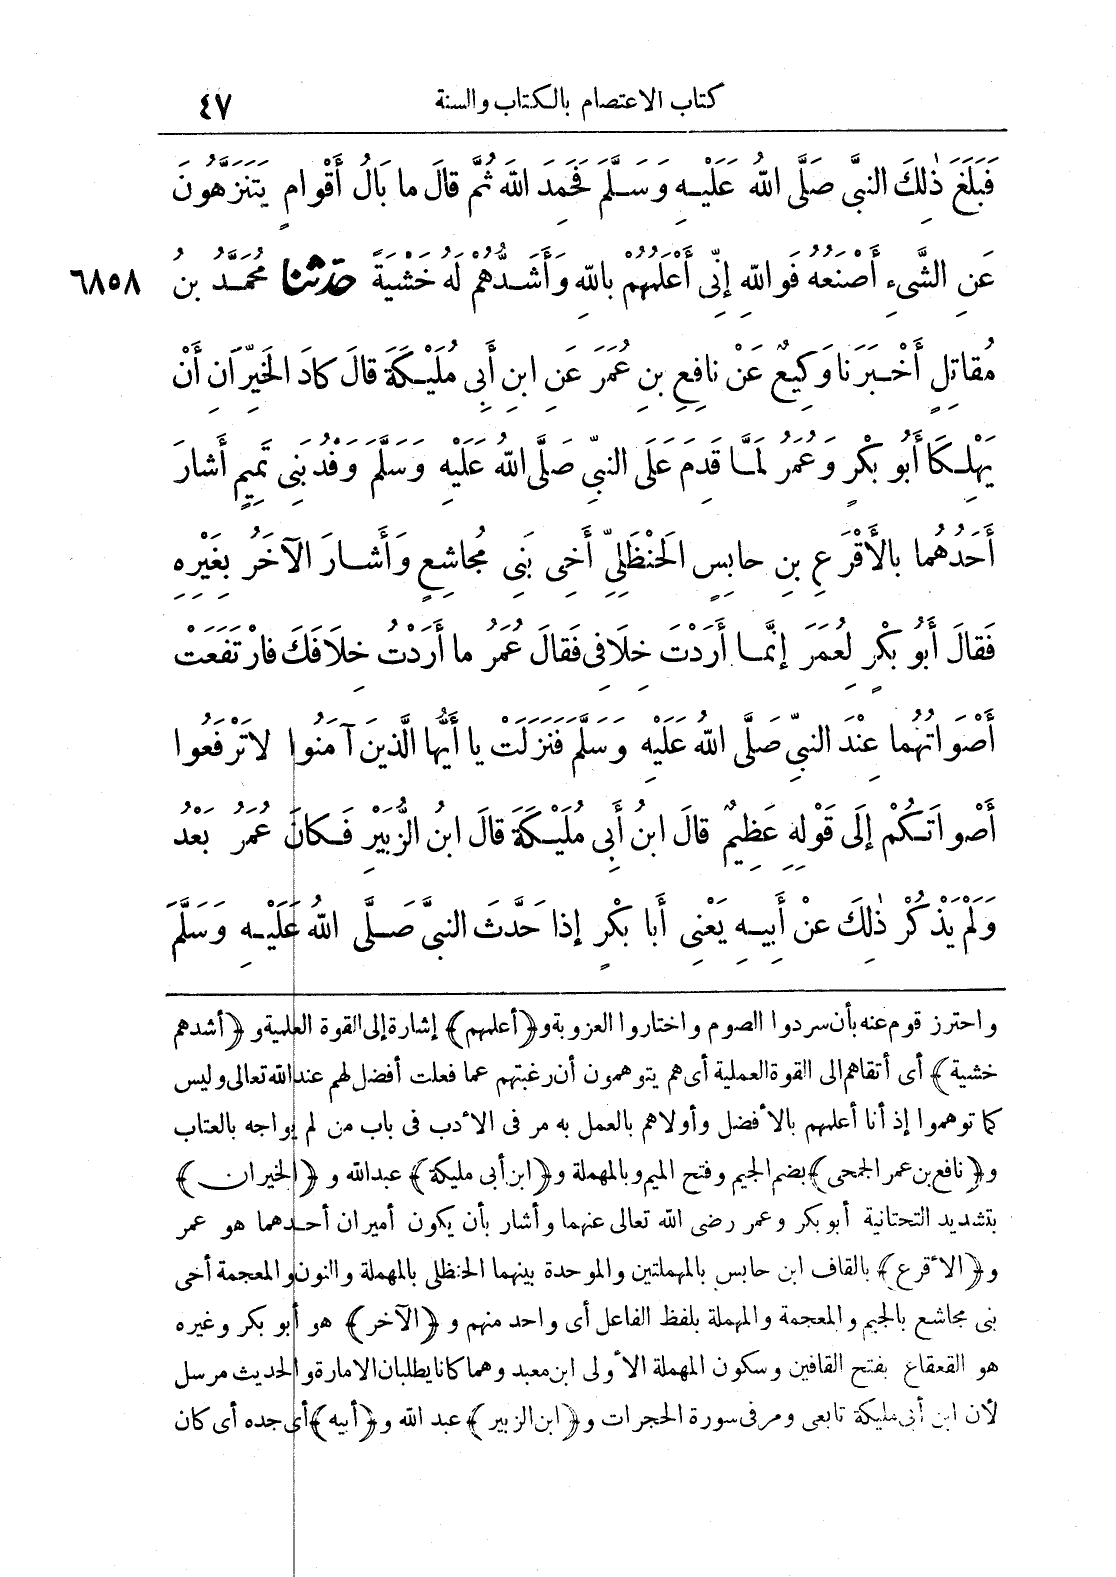 كتاب الاعتصام بالكتاب والسنة ٤٧
فَبَلَغَ ذٰلِكَ النبىَّ صَلَّى اللهُ عَلَيْـهِ وَسَـلَّمَ فَحَمِدَ اللهَ ثُمَّ قالَ ما بَالُ أَقْوامٍ يَتَنَزَّهُونَ
عَنِ الشَّىءِ أَصْنَعُهُ فَوَاللهِ إِنِّى أَعْلَمُهُمْ بِاللهِ وَأَشَـدُّهُمْ لَهُ خَشْيَةً حَدَّثَنَا مُحَمَّـدُ بنُ ٦٨٥٨
مُقاتِلٍ أَخْـبَرَنا وَكِيعٌ عَنْ نافِعِ بنِ عُمَرَ عَنِ ابنِ أَبِى مُلَيْـكَةَ قالَ كادَ الخَيِّرَانِ أَنْ
يَهْلِـكَا أَبُو بَكْرٍ وَعُمَرُ لَمَّـا قَدِمَ عَلَى النبىِّ صَلَّى اللهُ عَلَيْهِ وَسَلَّمَ وَفْدُ بَنِى تَمِيمٍ أَشارَ
أَحَدُهُما بِالأَقْرَعِ بنِ حابِسٍ الحَنْظَلِىِّ أَخِى بَنِى مُجاشِعٍ وَأَشـارَ الآخَرُ بِغَيْرِهِ
فَقالَ أَبُو بَكْرٍ لِعُمَرَ إِنَّمـا أَرَدْتَ خِلَافِى فَقالَ عُمَرُ ما أَرَدْتُ خِلَافَكَ فارْتَفَعَتْ
أَصْوَاتُهُما عِنْدَ النبىِّ صَلَّى اللهُ عَلَيْهِ وَسَلَّمَ فَنَزَلَتْ يا أَيُّها الَّذِينَ آمَنُوا لاتَرْفَعُوا
أَصْواتَكُمْ إِلَى قَوْلِهِ عَظِيمٌ قالَ ابنُ أَبِى مُلَيْـكَةَ قالَ ابنُ الزُّبَيْرِ فَـكانَ عُمَرُ بَعْدُ
وَلَمْ يَذْكُرْ ذٰلِكَ عنْ أَبِيـهِ يَعْنِى أَبا بَكْرٍ إِذا حَدَّثَ النبىَّ صَـلَّى اللهُ عَلَيْـهِ وَسَلَّمَ
واحترز قوم عنه بأن سردوا الصوم واختاروا العزوبة و﴿أعلمهم﴾ إشارة إلى القوة العلمية و﴿أشدهم
خشية﴾ أى أتقاهم الى القوة العملية أى هم يتوهمون أن رغبتهم عما فعلت أفضل لهم عند الله تعالى وليس
كما توهموا إذ أنا أعلمهم بالأفضل وأولاهم بالعمل به مر فى الأدب فى باب من لم يواجه بالعتاب
و﴿نافع بن عمر الجمحى﴾ بضم الجيم وفتح الميم وبالمهملة و﴿ابن أبى مليكة﴾ عبد الله و﴿الخيران﴾
بتشديد التحتانية أبو بكر وعمر رضى الله تعالى عنهما وأشار بأن يكون أميران أحـدهما هو عمر
و﴿الأقرع﴾ بالقاف ابن حابس بالمهملتين والموحدة بينهما الحنظلى بالمهملة والنون والمعجمة أخى
بنى مجاشع بالجيم والمعجمة والمهملة بلفظ الفاعل أى واحد منهم و﴿الآخر﴾ هو أبو بكر وغيره
هو القعقاع بفتح القافين وسكون المهملة الأولى ابن معبد وهما كانا يطلبان الامارة والحديث مرسل
لأن ابن أبى مليكة تابعى ومر فى سورة الحجرات و﴿ابن الزبير﴾ عبد الله و﴿أبيه﴾ أى جده أى كان